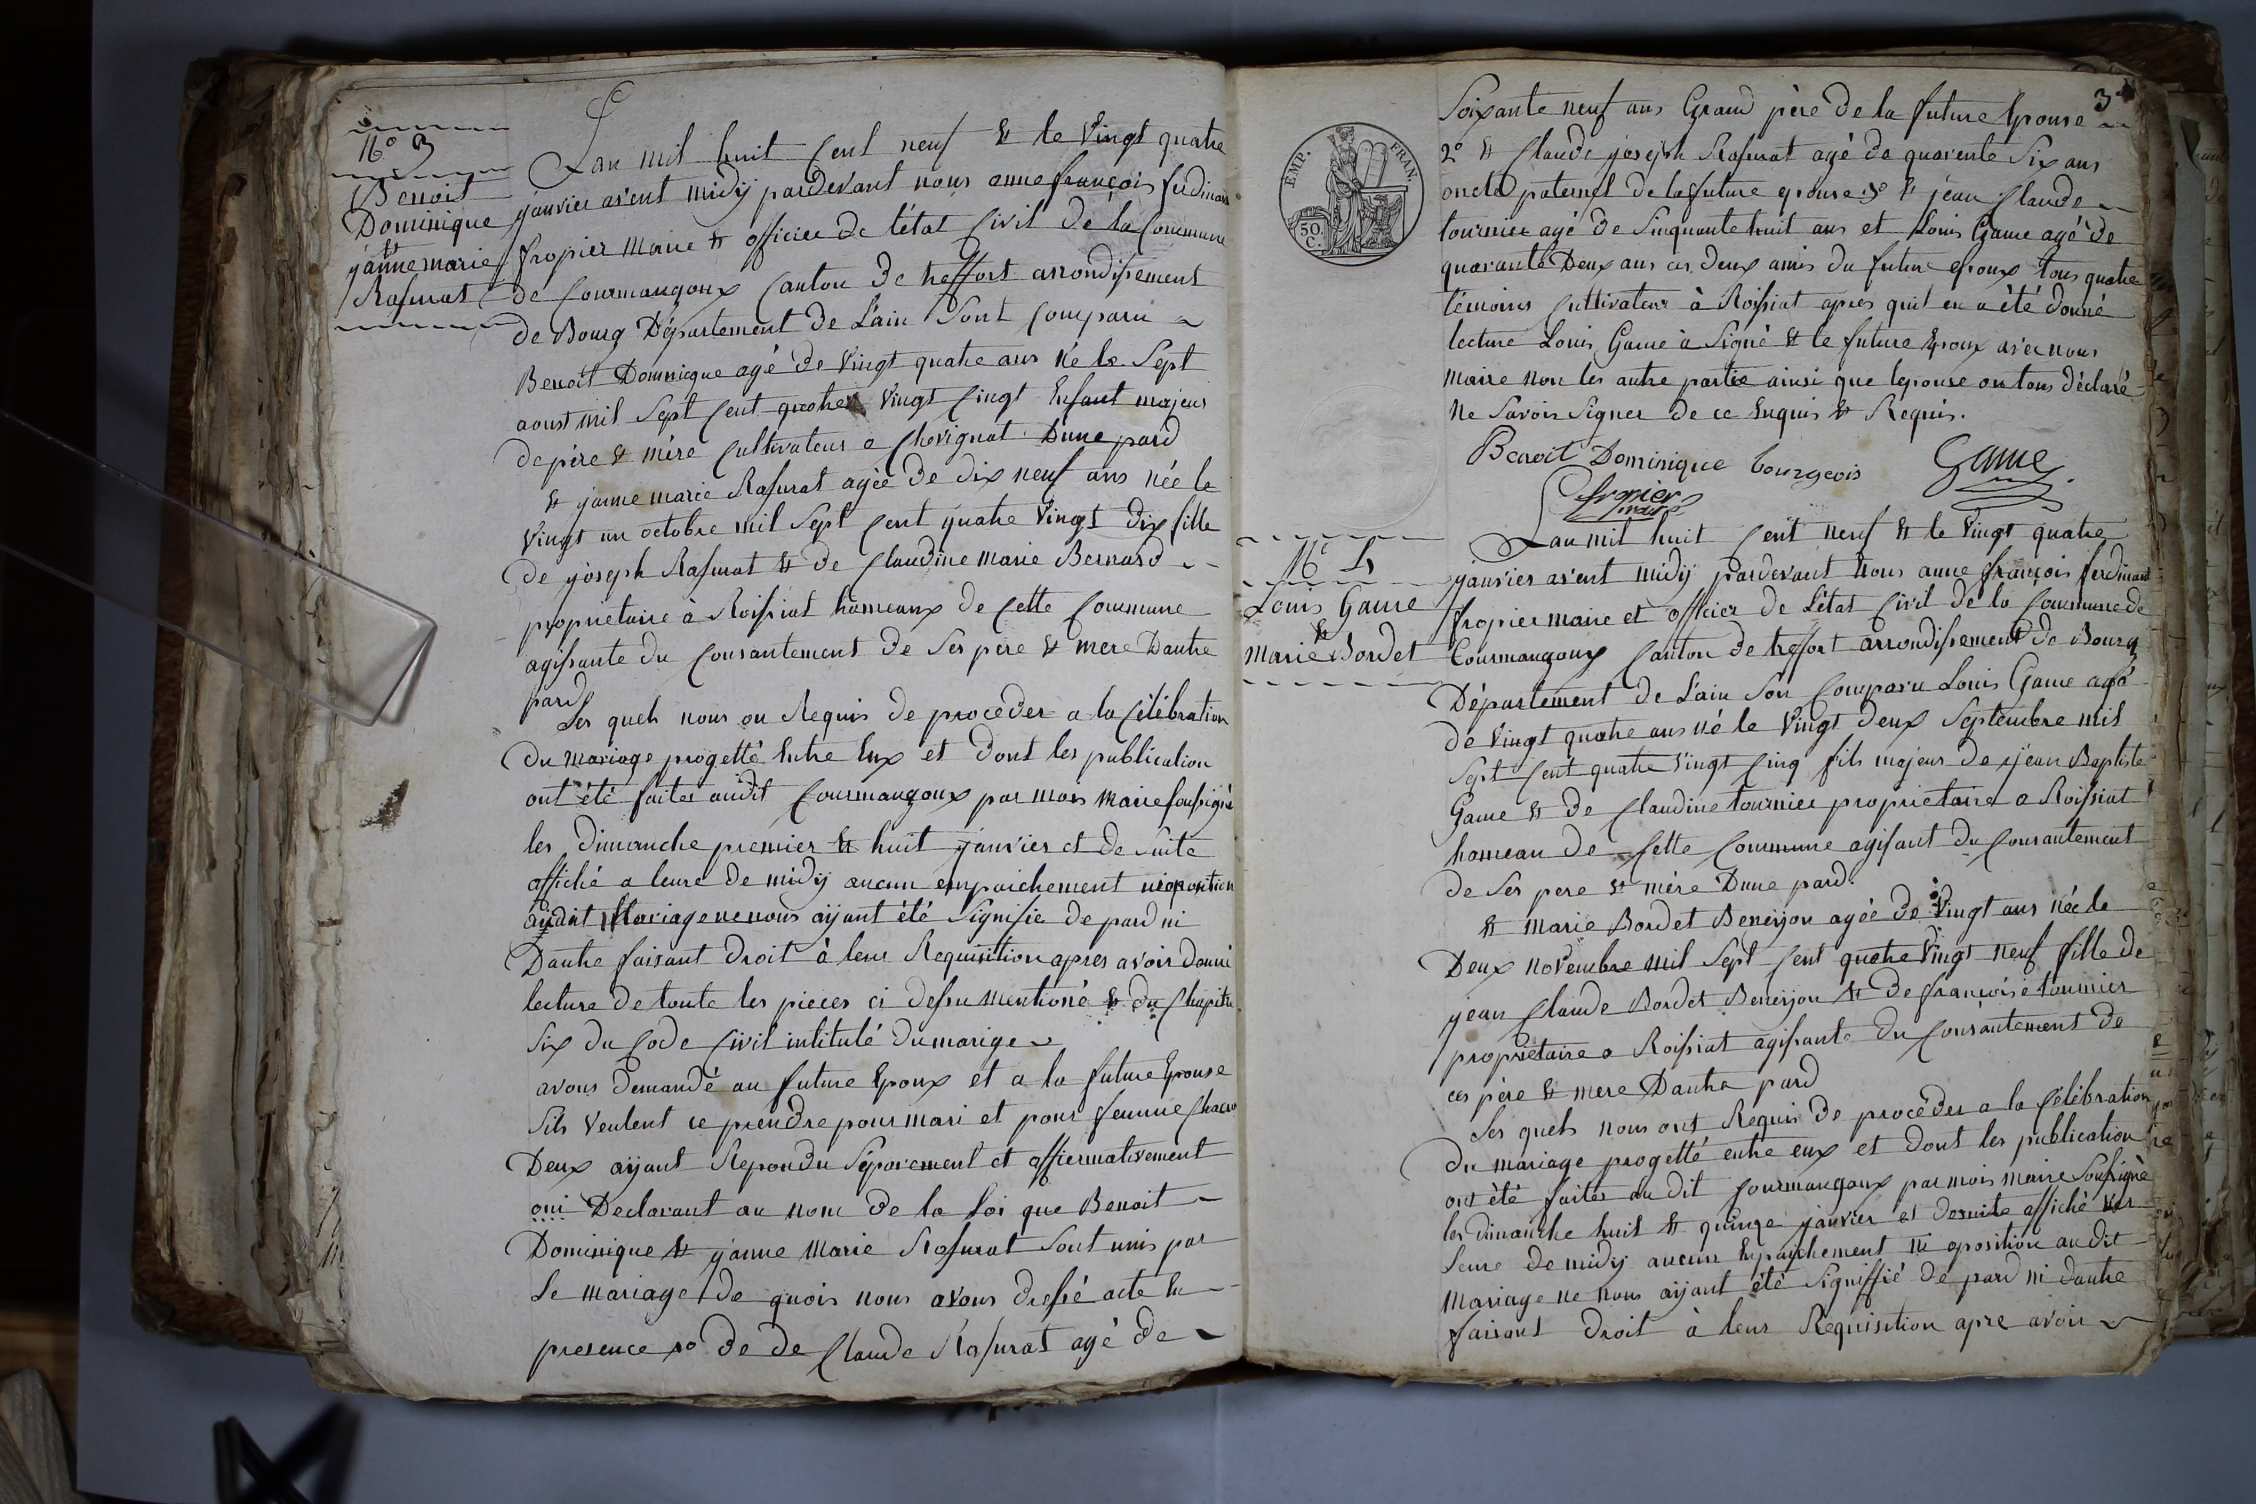 N.o 3
Benoit
Dominique
et
janne marie
Rafurat
Lan mil huit Cent neuf et le Vingt quatre
janvier avent midÿ pardevant nous anne françois ferdinan
fropier Maire et officier de l'état Civil de la Commune
de Courmangoux Canton de treffort arrondissement
de Bourg Département de L'ain Sont Comparu
Benoit Dominique agé de Vingt quatre ans né le Sept
aoust mil Sept Cent quatre Vingt Cinqt Enfant majeur
de père et mère Cultivateur a Chevignat Dune pard
et janne marie Rafurat agée de dix neuf ans née le
Vingt un octobre mil Sept Cent quatre Vingt Dix fille
de joseph Rafurat et de Claudine marie Bernard
proprietaire à Roissiat hameaux de Cette Commune
agissante du Consantement de Ses père et mere Dautre
pard
Les quels nous on Requis de procéder a la Célébration
du mariage progetté Entre Eux et dont les publication
ont été faites audit Courmangoux par mois Maire soussigné
les dimanche premier et huit janvier et de suite
affiché a leure de midÿ aucun empaichement ni oposition
audit Mariage ne nous aÿant été Signifie de pard ni
Dautre faisant droit à leur Requisition apres avoir donné
lecture de toute les pieces ci dessu mentioné et du Chapitre
Six du Code Civil intitulé du marige
avons demandé au future Epoux et a la future Epouse
Sils Veulent ce prendre pour mari et pour femme Chacun
Deux aÿant Repondu Séparement et affiermativement
oui Declarant au nom de la Loi que Benoit
Dominique et janne Marie Rafurat Sont unis par
Le mariage de quois nous avons dressé acte En
presence 1o de de Claude Rafurat agé de
3
EMP. FRAN.
50. C.
Soixante neuf ans Grand père de la future Epouse
2o et Claude joseph Rafurat agé de quarente Six ans
oncle paternel de la future epouse 3o et jean Claude
tournier agé de Sinquante huit ans et Louis Game agé de
quarante Deux ans ces deux amis du future epoux tous quatre
témoins Cultivateur à Roissiat apres quil en a été donné
lecture Louis Game à Signé et le future Epoux avec nous
maire non les autre partie ainsi que lepouse on tous déclaré
Ne Savoir Signer de ce Enquis et Requis.
Benoit Dominique bourgeois Game
fropier
maire
N.o 4
Louis Game
et
Marie Bordet
Lan mil huit Cent neuf et le Vingt quatre
janvier avent midÿ pardevant Nous anne françois ferdinant
fropier maire et officier de L'état Civil de la Commune de
Courmangoux Canton de treffort arrondissement de Bourg
Département de L'ain Son Comparu Louis Game agé
de Vingt quatre ans né le Vingt deux Septembre mil
Sept Cent quatre Vingt Cinq fils majeur de jean Baptiste
Game et de Claudine tournier proprietaire a Roissiat
hameau de Cette Commune agisant du Consantement
de Ses pere et mére Dune pard.
et Marie Bordet Beneijon agée de Vingt ans née le
Deux novembre mil Sept Cent quatre Vingt neuf fille de
jean Claude Bordet Beneijon et de françoise tournier
proprietaire a Roissiat agissante du Consantement de
ces père et mere Dautre pard
Les quels nous ont Requis de procéder a la Célébration
du mariage progetté entre eux et dont les publication
ont été faites au dit Courmangoux par mois maire Soussigné
les dimanche huit et quinze janvier et desuite affiché
Leure de midÿ aucun Enpaichement ni oposition au dit
Mariage ne nous aÿant été Signiffié de pard ni dautre
faisant droit à leur Requisition apre avoir